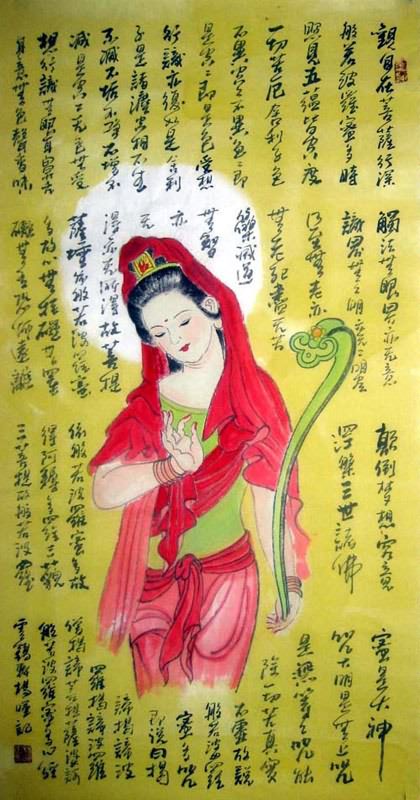 觀自在菩薩行深
般若波羅蜜多時
照見五蘊皆空度
一切苦厄舍利子色
不異空空不異色色即
是空空即是色受想
行識亦復如是舍利
子是諸法空相不生
不滅不垢不淨不增
減是空中無色無受
想行識無眼耳鼻舌
身意無色聲香味
觸法無眼界亦無意
識界無無明亦無無明盡
乃至無老死亦
無老死盡無苦
集滅道
無智
亦
無
得亦無所得故菩提
薩埵依般若波羅蜜
多故心無罣礙無罣
礙無有恐怖遠離
顛倒夢想究竟
涅槃三世諸佛
依般若波羅蜜多故
得阿耨多羅三藐
三菩提故般若波羅
蜜是大神
咒大明是無上咒
是無等等咒能
除一切苦真實
不虛故說
般若波羅
蜜多咒
即說曰揭
諦揭諦波
羅揭諦波羅
僧揭諦菩提薩婆訶
般若波羅蜜多心經